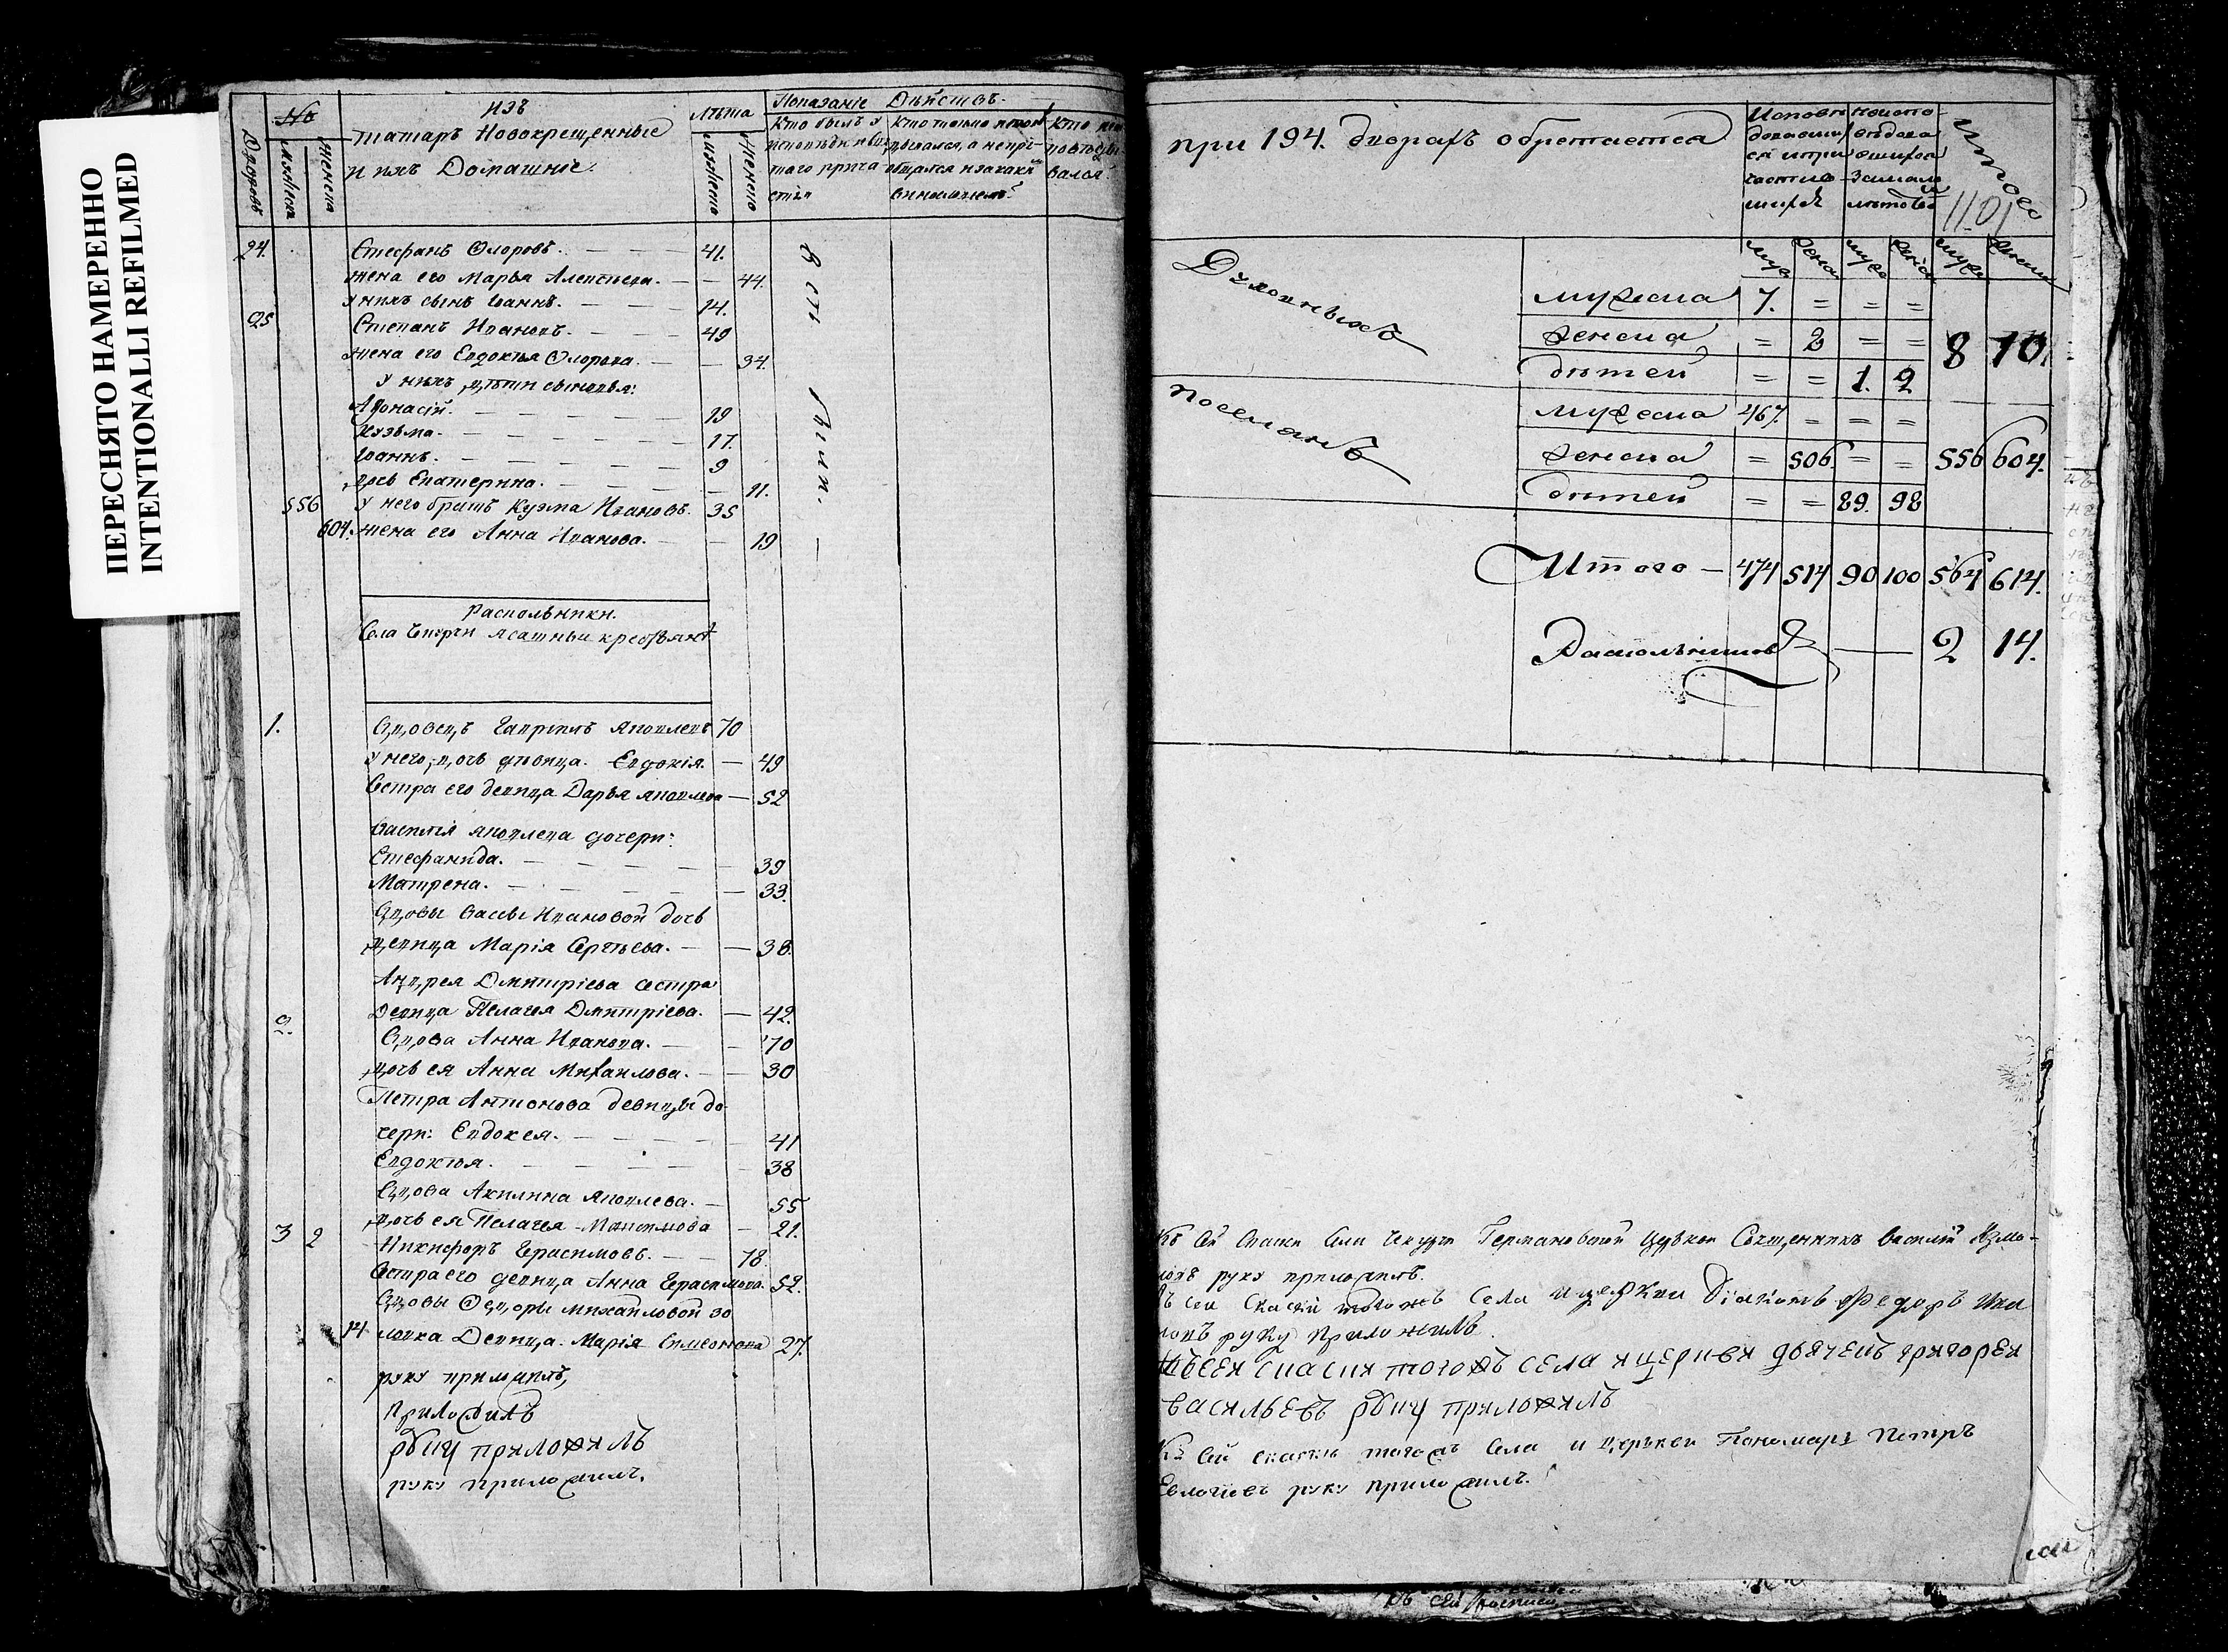 ПЕРЕСНЯТО НАМЕРЕННО
INTENTIONALLI REFILMED
Дворовъ
№
мужеска
женска
изъ
татаръ Новокрещенные
и ихъ Домашніе.
Лѣта
мужеско
женско
Показаніе Дѣйствъ.
Кто былъ у исповѣди и свя
таго прича
стія
Кто токмо исповѣ
дывался, а не прі
общался и за какимъ
винословіемъ
24. Стефанъ Ѳлоровъ. 41.
жена его Марья Алексѣева. 44.
у нихъ сынъ Іоаннъ. 14.
25 Степанъ Ивановъ. 49
жена его Евдокья Ѳлорова. 34.
у нихъ дѣти сыновья:
Афонасій. 19
Кузьма. 17.
Іоаннъ. 9
дочь Екатерина. 11.
556 У него братъ Кузма Ивановъ. 35
604. жена его Анна Иванова. 19
Раскольники.
Села Чекурчи ясашныи крестьянѣ
1. Вдовецъ Гаврилъ Яковлевъ 70
у него дочь дѣвица. Евдокія. 49
Сестра его девица Дарья Яковлева 52
Василія Яковлева дочери:
Стефанида. 39
Матрена. 33.
Вдовы Вассы Ивановой дочь
девица Марія Сергѣева. 38.
Андрея Дмитріева сестра
Девица Пелагея Дмитріева. 42.
2. Вдова Анна Иванова. 70
дочь ея Анна Михаилова. 30
Петра Антонова девицы до
чери: Евдокея. 41
Евдокѣя. 38
Вдова Акилина Яковлева. 55
дочь ея Пелагея Максимова 21.
3 2 Никифоръ Герасимовъ. 78.
Сестра его девица Анна Герасимова. 52.
Вдовы Ѳедоры Михаиловой зо
14 ловка Девица. Марія Симеонова 27.
руку приложилъ,
приложилъ
руку приложилъ
руку приложилъ.
при 194. дворахъ обретается
итого
1101
Духовныхъ
мужеска 7. = = =
женска = 2 = =
дѣтей = = 1. 2
8 10.
Поселянъ
мужеска 467. = = =
женска = 506. = =
дѣтей = = 89. 98
556 604.
Итого — 474 514 90 100 564 614.
Раскольниковъ — 2 14.
Къ сей сказки села Чекурчи Германовской церкви Священникъ Василій
руку приложилъ.
къ сей скаски тогожъ села и церкви діаконъ Федоръ
руку приложилъ.
Къ сей скаски тогожъ села и церкви дьячекъ григорей
васильевъ руку приложилъ
Къ сей скаскѣ тогожъ села и церкви Пономарь Петръ
Евлогіевъ руку приложилъ.